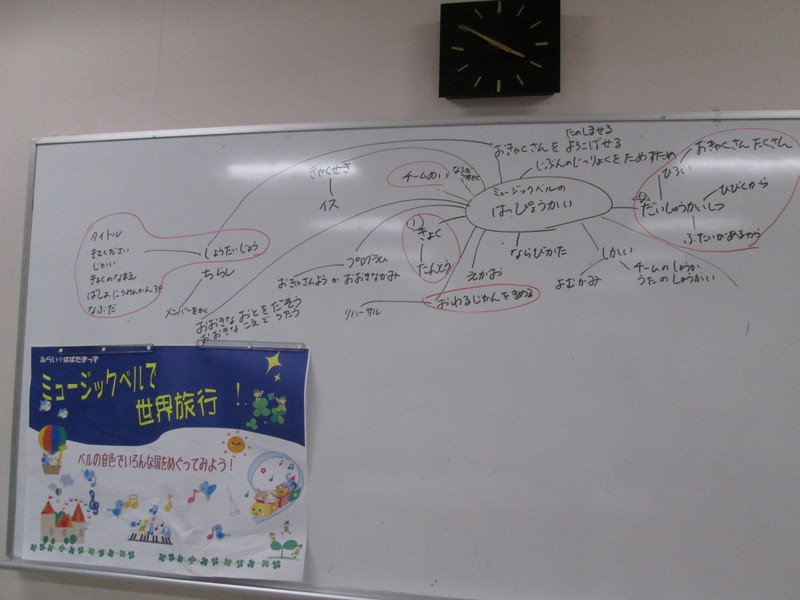 たのしませる
おきゃくさんを よろこばせる
じぶんのじつりょくを ためすため
ミュージックベルの
はっぴょうかい
おきゃくさん たくさん
ひろい
だいしょうかいしつ
ひびくから
ぶたいがあるから
きゃくせき
イス
チームめい
①
きょく
たんとう
ならびかた
しかい
よむかみ
チームのしょうかい
うたのしょうかい
えがお
おわるじかんをきめる
リハーサル
プログラム
おきゃさんよう か おおきなかみ
おおきなおとをだそう
おおきなこえでうたう
しょうたいじょう
ちらし
メンバーをかく
タイトル
きてください
じかい
きょくのなまえ
なふだ
みらい☆はばたきっず
ミュージックベルで
世界旅行!
ベルの音色でいろんな国をめぐってみよう!